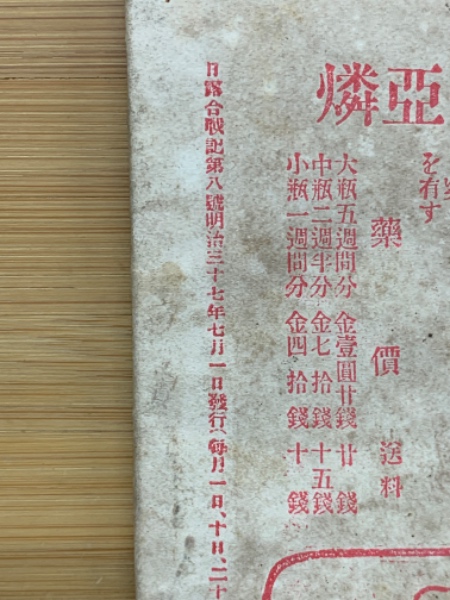 亞燐
を有す
藥價 送料
大瓶五週間分 金壹圓廿錢 廿錢
中瓶二週半分 金七拾錢 十五錢
小瓶一週間分 金四拾錢 十錢
日露合戰記第八號明治三十七年七月一日發行(每月一日、十日、二十